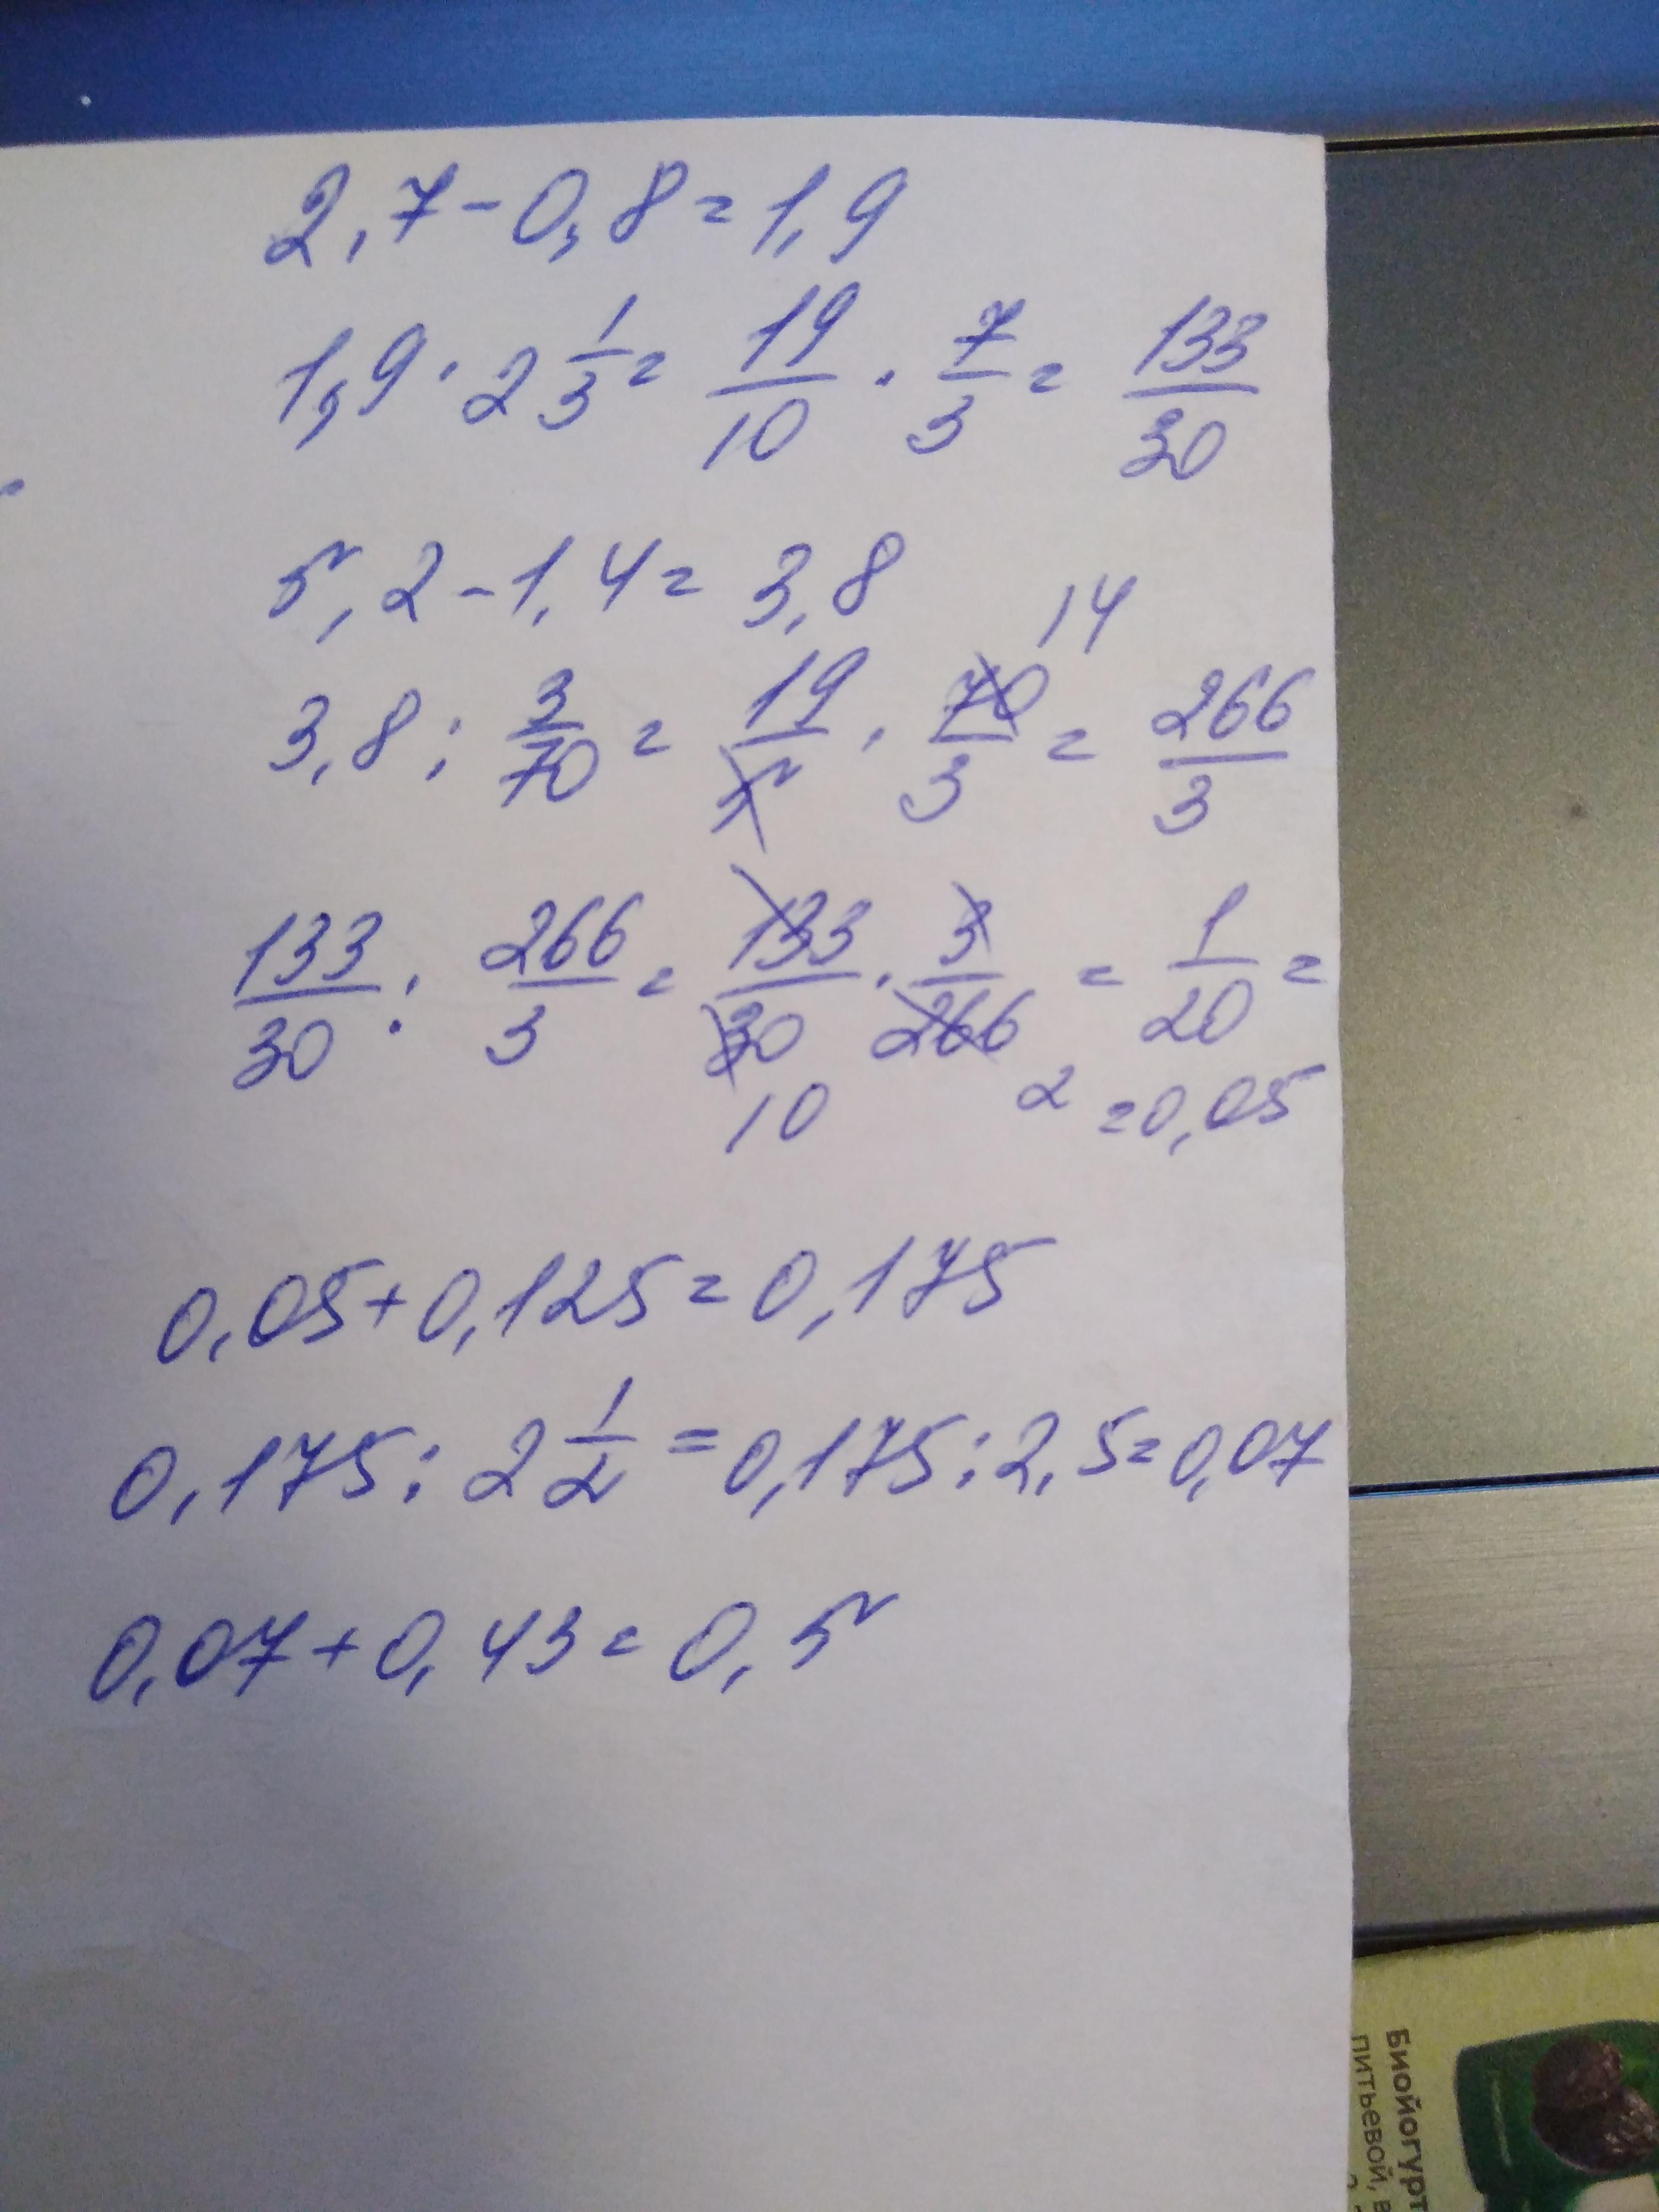 2,7-0,8=1,9
1,9·2 1/3=19/10·7/3=133/30
5,2-1,4=3,8
14
3,8:3/70=19/5·70/3=266/3
133/30:266/3=133/30·3/266=1/20=
10 2 =0,05
0,05+0,125=0,175
0,175:2 1/2=0,175:2,5=0,07
0,07+0,43=0,5
Биойогурт
питьевой, в